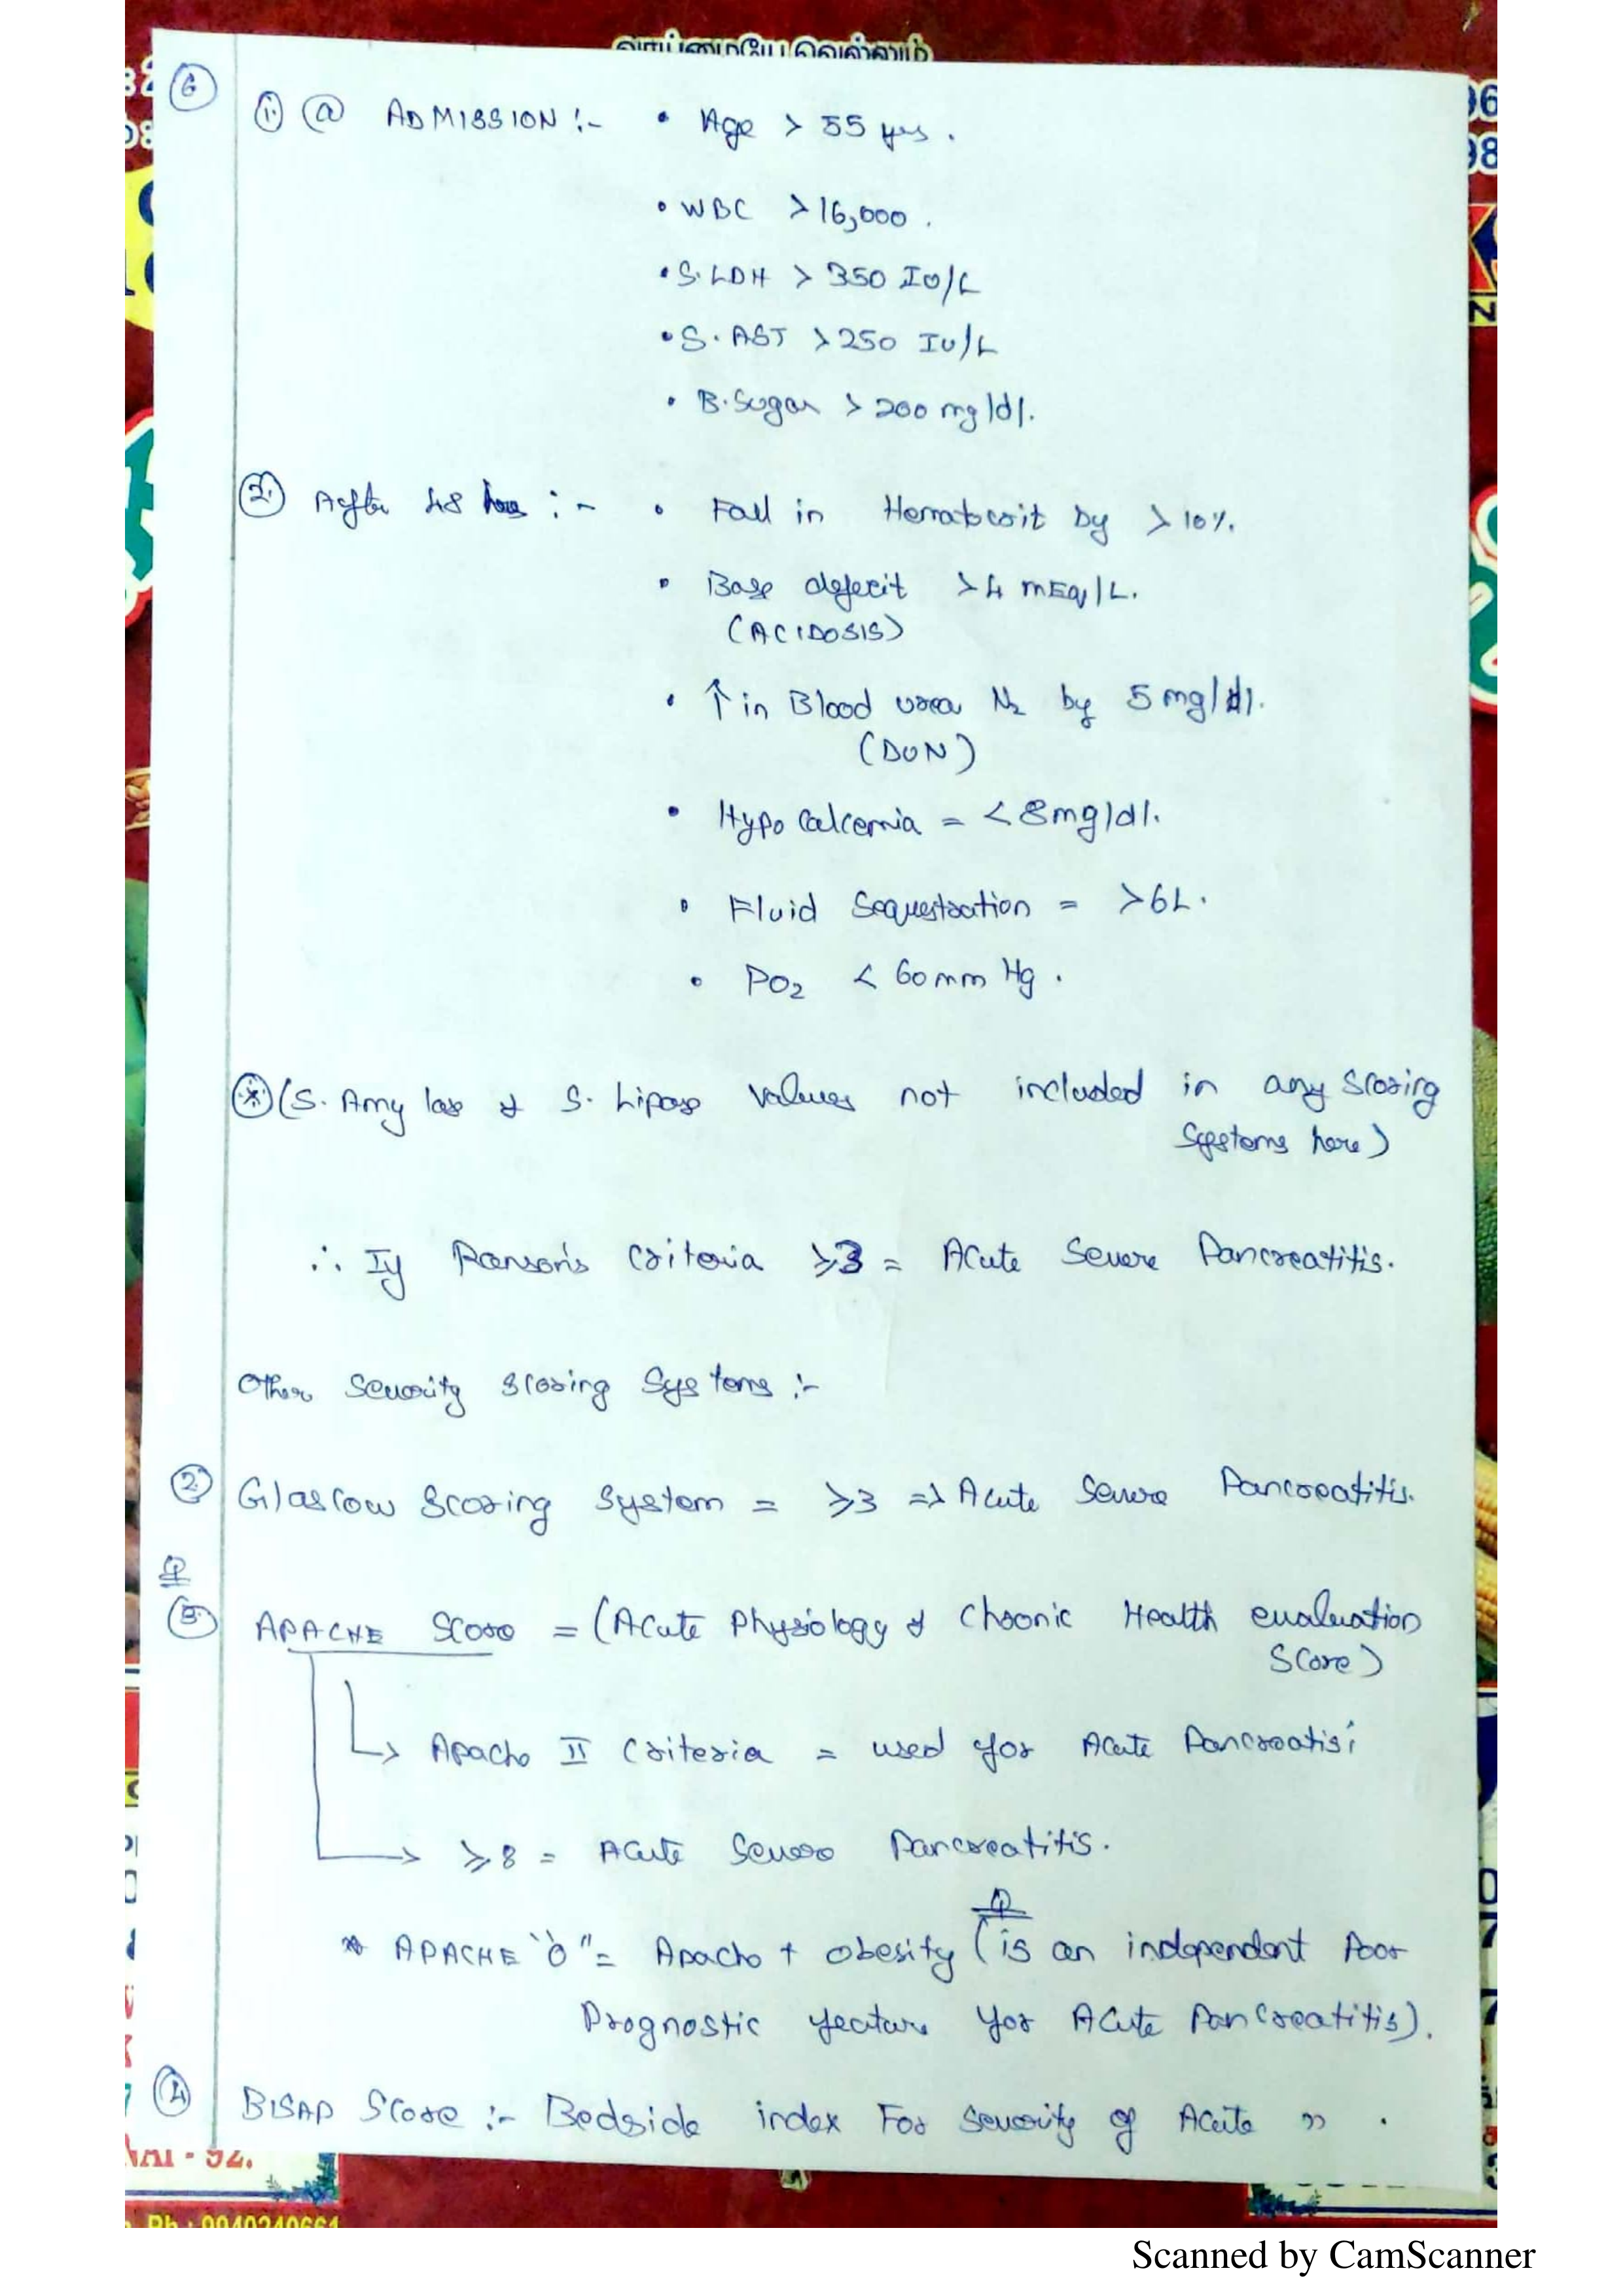 வாய்மையே வெல்லும்
6
1. @ ADMISSION :- • Age > 55 yrs.
• WBC > 16,000.
• S. LDH > 350 IU/L
• S. AST > 250 IU/L
• B. Sugar > 200 mg/dl.
2. After 48 hrs :- • Fall in Hematocrit by > 10%.
• Base deficit > 4 mEq/L.
(ACIDOSIS)
• ↑ in Blood urea N2 by 5 mg/dl.
(BUN)
• Hypo calcemia = < 8mg/dl.
• Fluid Sequestration = >6L.
• PO2 < 60 mm Hg.
* (S. Amylase & S. Lipase values not included in any scoring
Systems here)
∴ If Ranson's Criteria ≥3 = Acute Severe Pancreatitis.
Other Severity scoring Systems :-
2. Glascow Scoring System = ≥3 => Acute Severe Pancreatitis.
Q
3. APACHE Score = (Acute Physiology & Chronic Health evaluation
Score)
→ Apache II Criteria = used for Acute Pancreatitis
→ ≥8 = Acute Severe Pancreatitis.
Q
* APACHE "O" = Apache + Obesity (is an independent Poor
Prognostic feature for Acute Pancreatitis).
4. BISAP Score :- Bedside index For Severity of Acute " .
NAI - 92.
Ph : 9940240661
Scanned by CamScanner